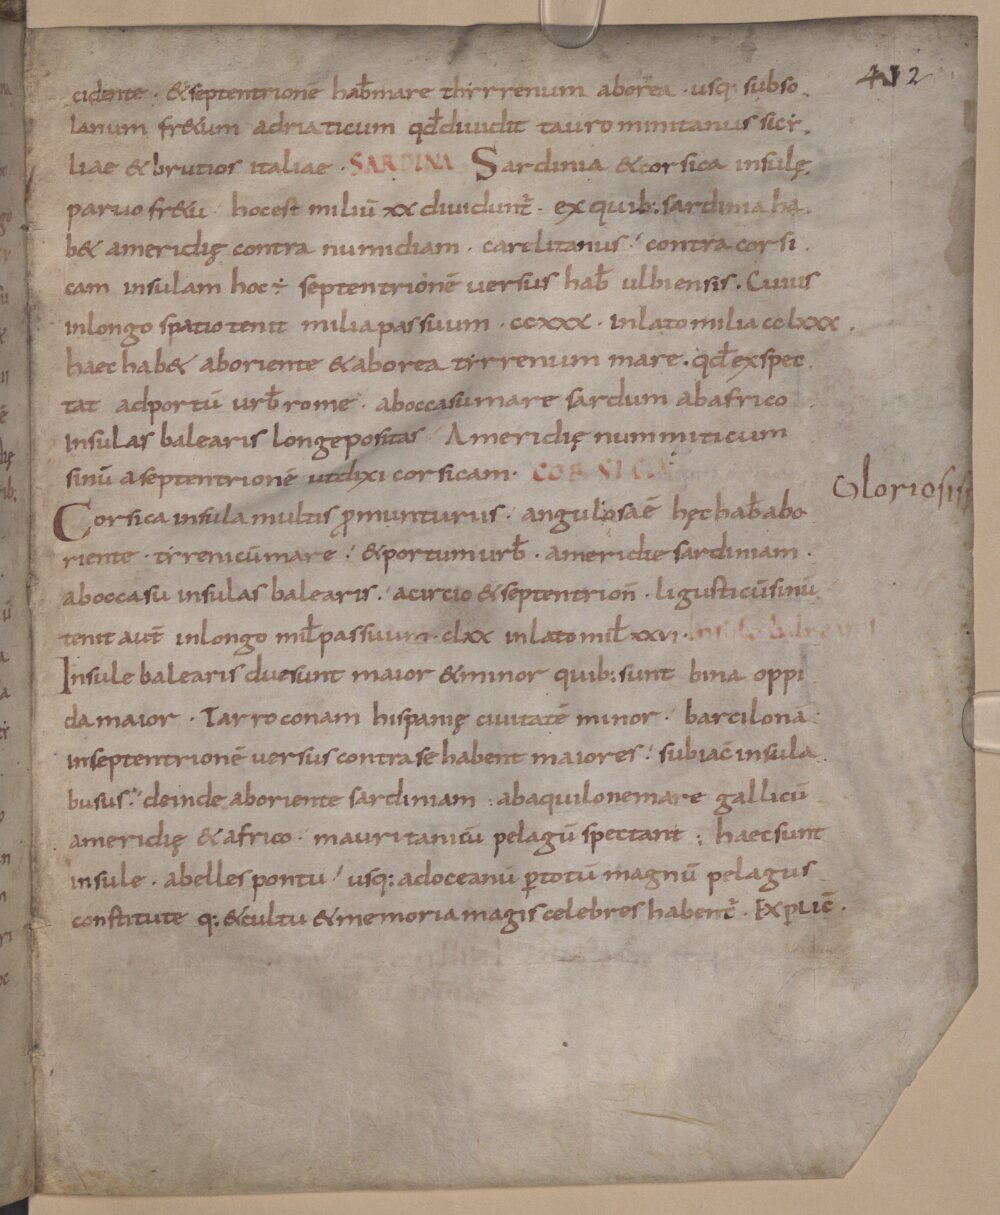 432
cidente · &septentrionē hab̄mare thirrrenum aborea · usq; subso
lanum fr&um adriaticum qd̄diuidit tauro minitanus sici
liae & brutios italiae · SARDINA Sardinia &corsica insulę
paruo fr&u · hocest miliū xx diuidunt̄ · ex quib; sardinia ha
b& ameridię contra numidiam · carlitanus · contra corsi
cam insulam hoc ÷ septentrionē uersus hab̄ ulbiensis · Cuius
inlongo spatio tenit milia passuum · ccxxx · Inlato milia cclxxx ·
haec hab& aboriente & aborea tirrenum mare · qd̄ exspec
tat adportū urb̄ rome · aboccasu mare sardum abafrico
Insulas balearis longe positas · Ameridię nummiticum
sinū a septentrionē utdixi corsicam · CORSICA
Gloriosis
Corsica insula multis p̄munturus · angulosaē hęc hab̄ abo
riente · tirrenicū mare · & portum urb̄ · ameridie sardiniam ·
aboccasu insulas balearis · acircio & septentrion̄ · ligusticūsinū
tenit aut̄ inlongo mil̄ passuum · clxx inlato mil̄ xxvi ·
Insule balearis duesunt maior & minor quib; sunt bina oppi
da maior · Tarroconam hispanię ciuitatē minor · barcilona
inseptentrionē uersus contra se habent maiores · subiac̄ insula
busus · deinde aboriente sardiniam · abaquilone mare gallicū
ameridię & africo · mauritanicū pelagū spectant ; haec sunt
insule · abellespontu · usq; adoceanū p̄totū magnū pelagus
constitute q; &cultu & memoria magis celebres habent̄ · Explic̄ ·